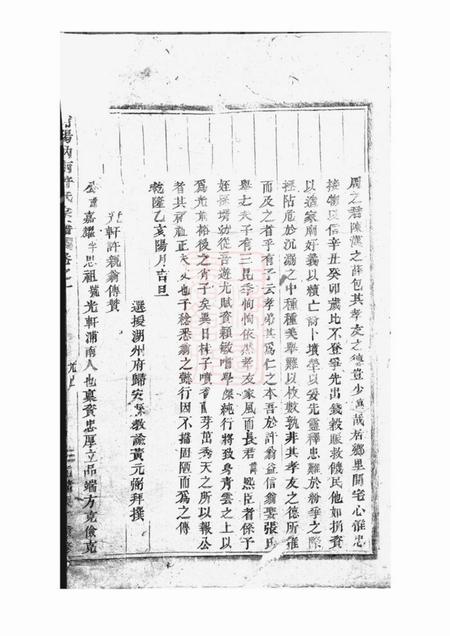 周之君陳漢之薛包其孝友之德豈少遜哉若鄉里間宅心惟忠
接物以信辛丑癸卯歲比不登爭先出錢穀賑救饑民他如捐資
以造家廟好義以積亡討卜墳塋以妥先靈釋忠難於紛爭之際
拯阽危於沉溺之中種種美舉難以枚數孰非其孝友之德所推
而及之者乎有子云孝弟其為仁之本吾於許翁益信翁娶張氏
舉丈夫子有三昆季恂恂依然孝友家風而長君熙臣者係予
姪孫壻幼從吾遊尤賦資頴敏嗜學深純行將致身青雲之上以
為光前裕後之有子矣異日林子噴香芽萬秀天之所以報公
者其有祖正未艾也予稔悉翁之懿行因不揣固陋而為之傳
乾隆乙亥陽月吉旦
選授湖州府歸安縣教諭黃元弼拜撰
光軒許親翁傳贊
公諱嘉耀字思祖號光軒浦南人也稟資忠厚立品端方克儉克
許氏宗譜 卷之一